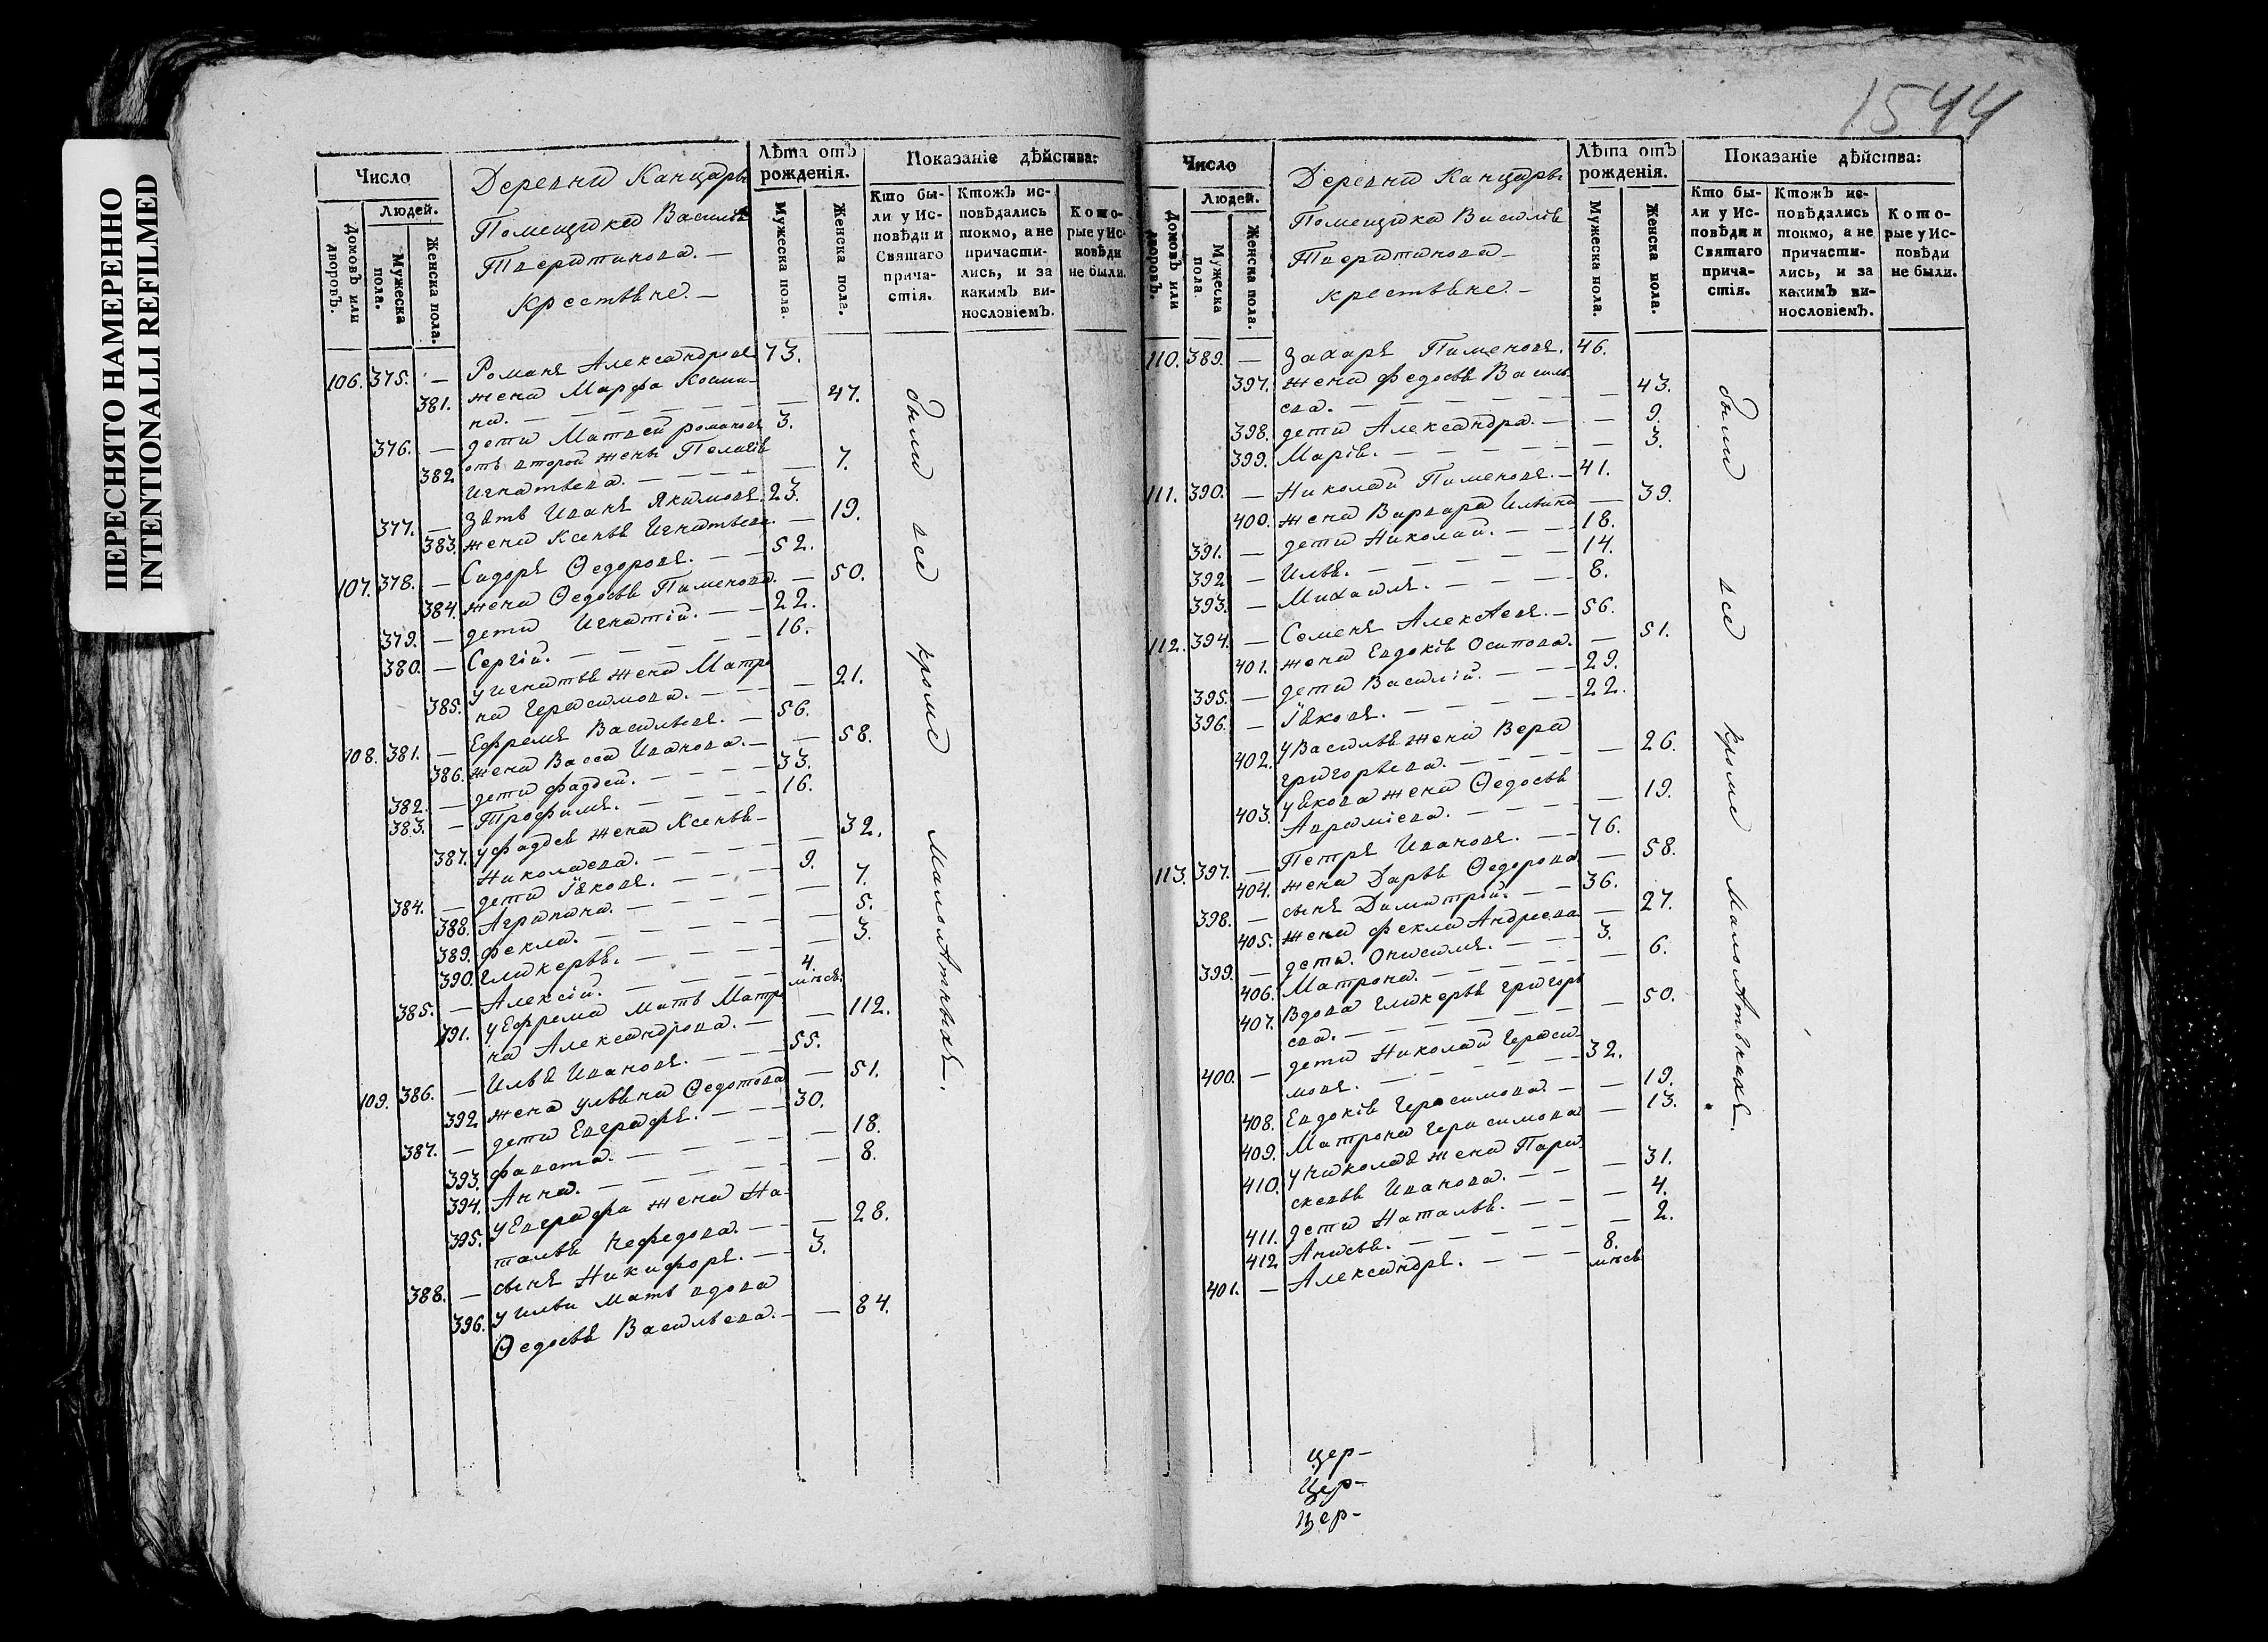 ПЕРЕСНЯТО НАМЕРЕННО
INTENTIONALLI REFILMED
1544
Число
Людей.
Домовъ или дворовъ.
Мужеска пола.
Женска пола.
Деревни Канцарь
Помещика Василія
Тверитинова. —
крестьяне. —
Лѣта отъ рожденія.
Мужеска пола.
Женска пола.
Показаніе дѣйства:
Кто были у Исповѣди и Святаго причастія.
Ктожъ исповѣдались токмо, а не причастились, и за какимъ винословіемъ.
Которые у Исповѣди не были.
106. 375. — Романъ Александровъ 73.
381. жена Марфа Косми-
на. — — 47.
376. — дети Матвей романовъ 3.
382 отъ второй жены Пелагія
Игнатьева. — — 7.
377. — Зять Иванъ Якимовъ. 23.
383. жена Ксенья Игнатьева. — 19.
107. 378. — Сидоръ Ѳедоровъ. — — 52.
384. жена Ѳедосья Пименова. — 50.
379. — дети Игнатій. — — 22.
380. — Сергій. — — 16.
385. у игнатья жена Матро
на Герасимова. — — 21.
108. 381. — Ефремъ Васильевъ. — 56.
386. жена Васса Иванова. — — 58.
382. — дети фаддей. — — 33.
383. — Трофимъ. — — 16.
387. у фадея жена Ксенья —
Николаева. — — 32.
384. — дети Іяковъ. — — 9.
388. Агрипина. — — 7.
389. Фекла. — — 5.
390. Гликерья. — — 3.
385. — Алексій. — — 4. мѣся.
391. у Ефрема мать Матро
на Александрова. — — 112.
109. 386. — Илья Ивановъ. — — 55.
392 жена ульяна Ѳедотова — 51.
387. — дети Евграфъ. — — 30.
393. фавста. — — 18.
394. Анна. — — 8.
395. у Евграфа жена На-
талья Нефедова. — — 28.
388. — сынъ Никифоръ. — — 3.
396. у ильи мать вдова
Ѳедосья Васильева. — — 84.
были все кроме малолѣтныхъ.
Число
Людей.
Домовъ или дворовъ.
Мужеска пола.
Женска пола.
Деревни Канцарь
Помещика Василія
Тверитинова —
крестьяне. —
Лѣта отъ рожденія.
Мужеска пола.
Женска пола.
Показаніе дѣйства:
Кто были у Исповѣди и Святаго причастія.
Ктожъ исповѣдались токмо, а не причастились, и за какимъ винословіемъ.
Которые у Исповѣди не были.
110. 389. — Захаръ Пименовъ. 46.
397. жена федосья Василь
ева. — — 43.
398. дети Александра. — — 9.
399. Марія. — — 3.
111. 390. — Николай Пименовъ. — 41.
400. жена Варвара Ильина — 39.
391. — дети Николай. — — 18.
392 — Илья. — — 14.
393. — Михаилъ. — — 8.
112. 394. — Семенъ Алексѣевъ. — 56.
401. жена Евдокія Осипова. — 51.
395. — дети Василій. — — 29.
396. — Іяковъ. — — 22.
402. у Василья жена Вера
григорьева. — — 26.
403. у Якова жена Ѳедосья
Авраміева. — — 19.
113. 397. — Петръ Ивановъ. — — 76.
404. жена Дарья Ѳедорова — 58.
398. — сынъ Димитрій. — — 36.
405. жена фекла Андреева — 27.
399. — дети. Онисимъ. — — 3.
406. Матрона. — — 6.
407. Вдова Гликерья григорь
ева. — — 50.
400. — дети Николай Гераси
мовъ. — — 32.
408. Евдокія Герасимова. — — 19.
409. Матрона герасимова — 13.
410. у николая жена Пара
скевья Иванова. — — 31.
411. дети Наталья. — — 4.
412 Анисья. — — 2.
401. — Александръ. — — 8. мѣся
были все кроме малолѣтныхъ.
цер-
Цер-
цер-